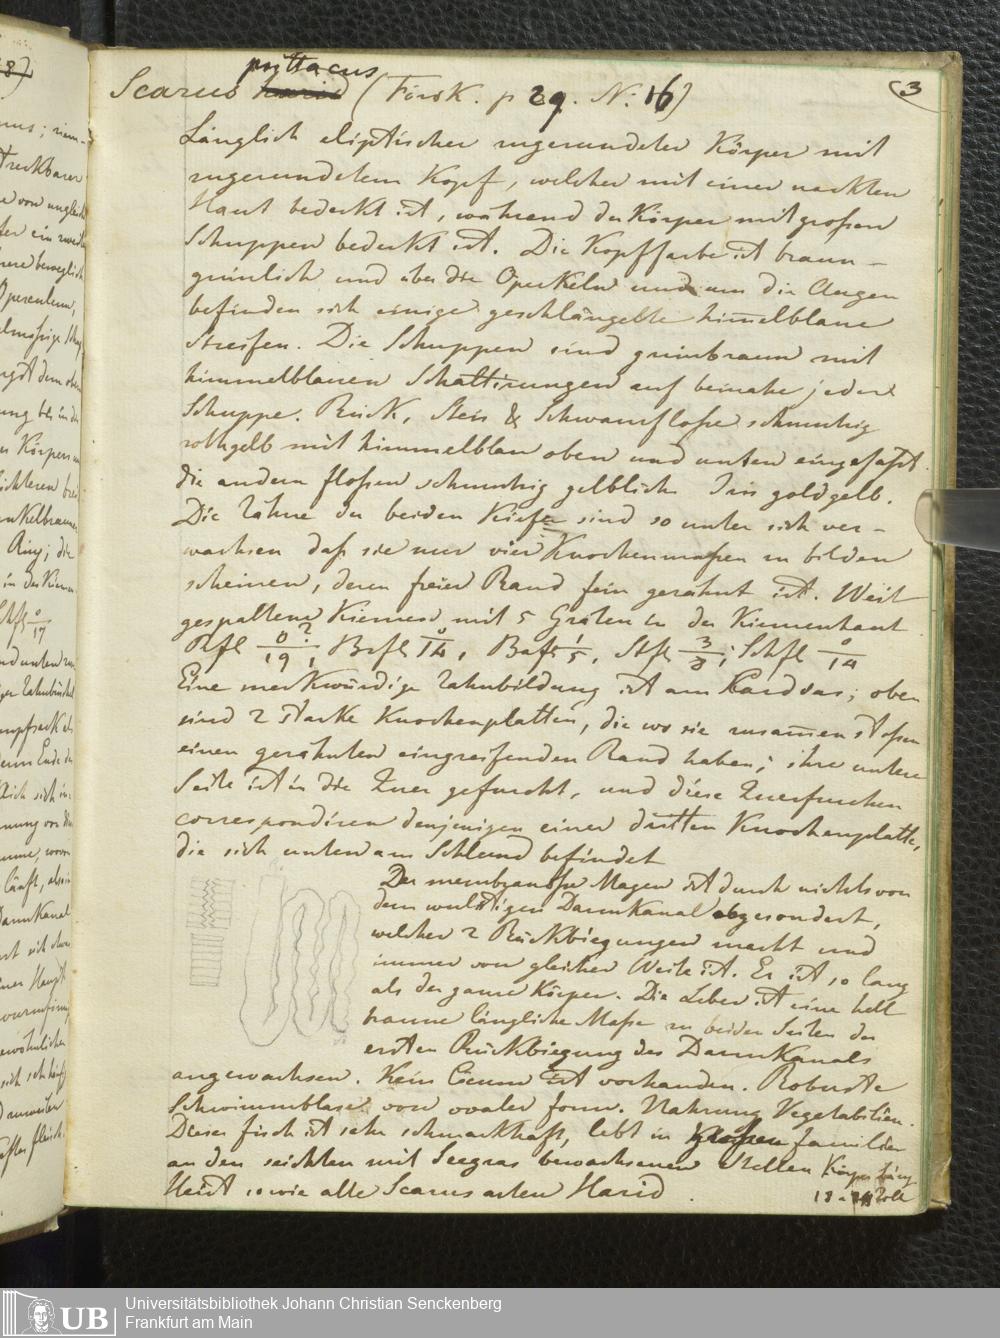 (3
psittacus
Scarus harid (Forsk. p 29. N: 16)
Länglich eliptischer zugerundeter Körper mit
zugerundetem Kopf, welcher mit einer nackten
Haut bedeckt ist, während der Körper mit großen
Schuppen bedeckt ist. Die Kopffarbe ist braun-
grünlich und über die Operkeln und um die Augen
befinden sich einige geschlängelte himelblaue
Streifen. Die Schuppen sind grünbraun mit
himmelblauen Schattirungen auf beinahe jeder
Schuppe. Rück, Steis & Schwanzfloße schmutzig
rothgelb mit himmelblau oben und unten eingefaßt.
die andern floßen schmutzig gelblich Iris goldgelb.
Die Zähne der beiden Kiefer sind so unter sich ver-
wachsen daß sie nur vier Knochenmaßen zu bilden
scheinen, deren freier Rand fein gezähnt ist. Weit
gespaltene Kiemen mit 5 Gräten in der Kiemenhaut
Rfl 0/19, Brfl 0/14, Bafl 1/5, Stfl 3/8; Schfl 0/14
Eine merkwürdige Zahnbildung ist am ; oben
sind 2 starke Knochenplatten, die wo sie zusamen stoßen
einen gezähnten eingreifenden Rand haben; ihre untere
Seite ist in die Quer gefurcht, und diese Querfurchen
correspondiren denjenigen einer dritten Knochenplatte,
die sich unten am Schlund befindet
Der membranöse Magen ist durch nichts von
dem wulstigen DarmKanal abgesondert,
welcher 2 Rückbiegungen macht und
immer von gleicher Weite ist. Er ist so lang
als der ganze Körper. Die Leber ist eine hell
braune längliche Maße zu beiden Seiten der
ersten Rückbiegung des DarmKanals
angewachsen. Kein Coecum ist vorhanden. Robuste
Schwimmblase von ovaler form. Nahrung Vegetabilien.
Dieser fisch ist sehr schmackhaft, lebt in großen familien
an den seichten mit Seegras bewachsenen Stellen Körperläng
Heist so wie alle Scarus arten Harid. 18 Zoll
Universitätsbibliothek Johann Christian Senckenberg
UB Frankfurt am Main